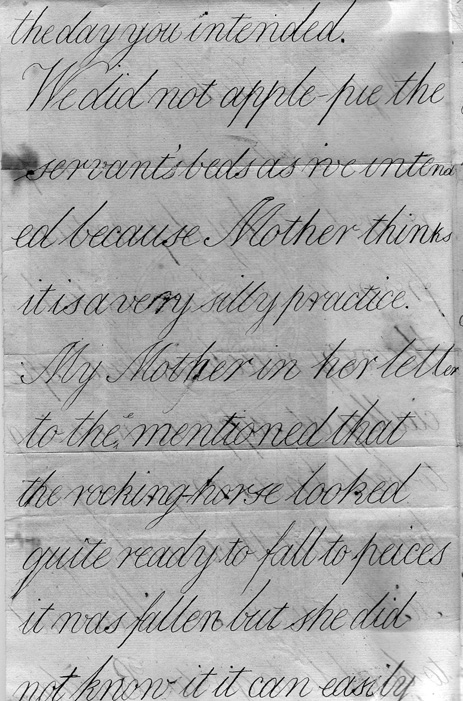 the day you intended.
We did not apple-pie the
servant's beds as we intend
ed because Mother thinks
it is a very silly practice.
My Mother in her letter
to the, mentioned that
the rocking-horse looked
quite ready to fall to peices
it was fallen but she did
not know it it can easily